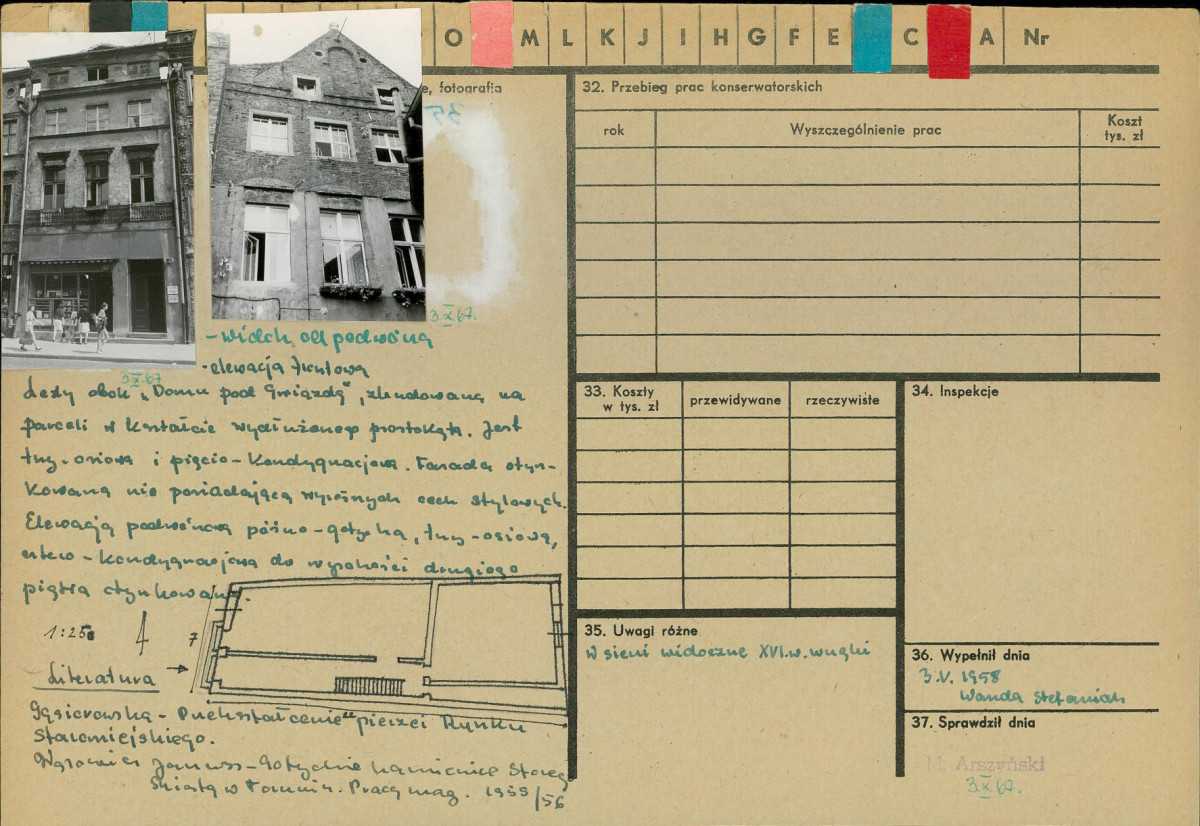 O M L K J I H G F E C A Nr
e, fotografia
35
3.X.67.
- widok od podwórza
3.X.67
- elewacja frontowa
Leży obok „Domu pod Gwiazdą", zbudowana na
parceli w kształcie wydłużonego prostokąta. Jest
trzy-osiowa i pięcio-kondygnacjowa. Fasada otyn-
kowana nie posiadająca wyraźnych cech stylowych.
Elewacja podwórzowa późno-gotycka, trzy-osiowa,
cztero-kondygnacjowa do wysokości drugiego
piętra otynkowana.
1:250
7
Literatura
Gąsiorowska - Przekształcenie pierzei Rynku
Staromiejskiego.
Janusz - Gotyckie kamienice Starego
Miasta w Toruniu. Praca mag. 1955/56
32. Przebieg prac konserwatorskich
rok Wyszczególnienie prac Koszt tys. zł
33. Koszty w tys. zł przewidywane rzeczywiste
34. Inspekcje
35. Uwagi różne
W sieni widoczne XVI.w. wnęki
36. Wypełnił dnia
3.V.1958
Wanda Stefaniak
37. Sprawdził dnia
M. Arszyński
3.X.67.